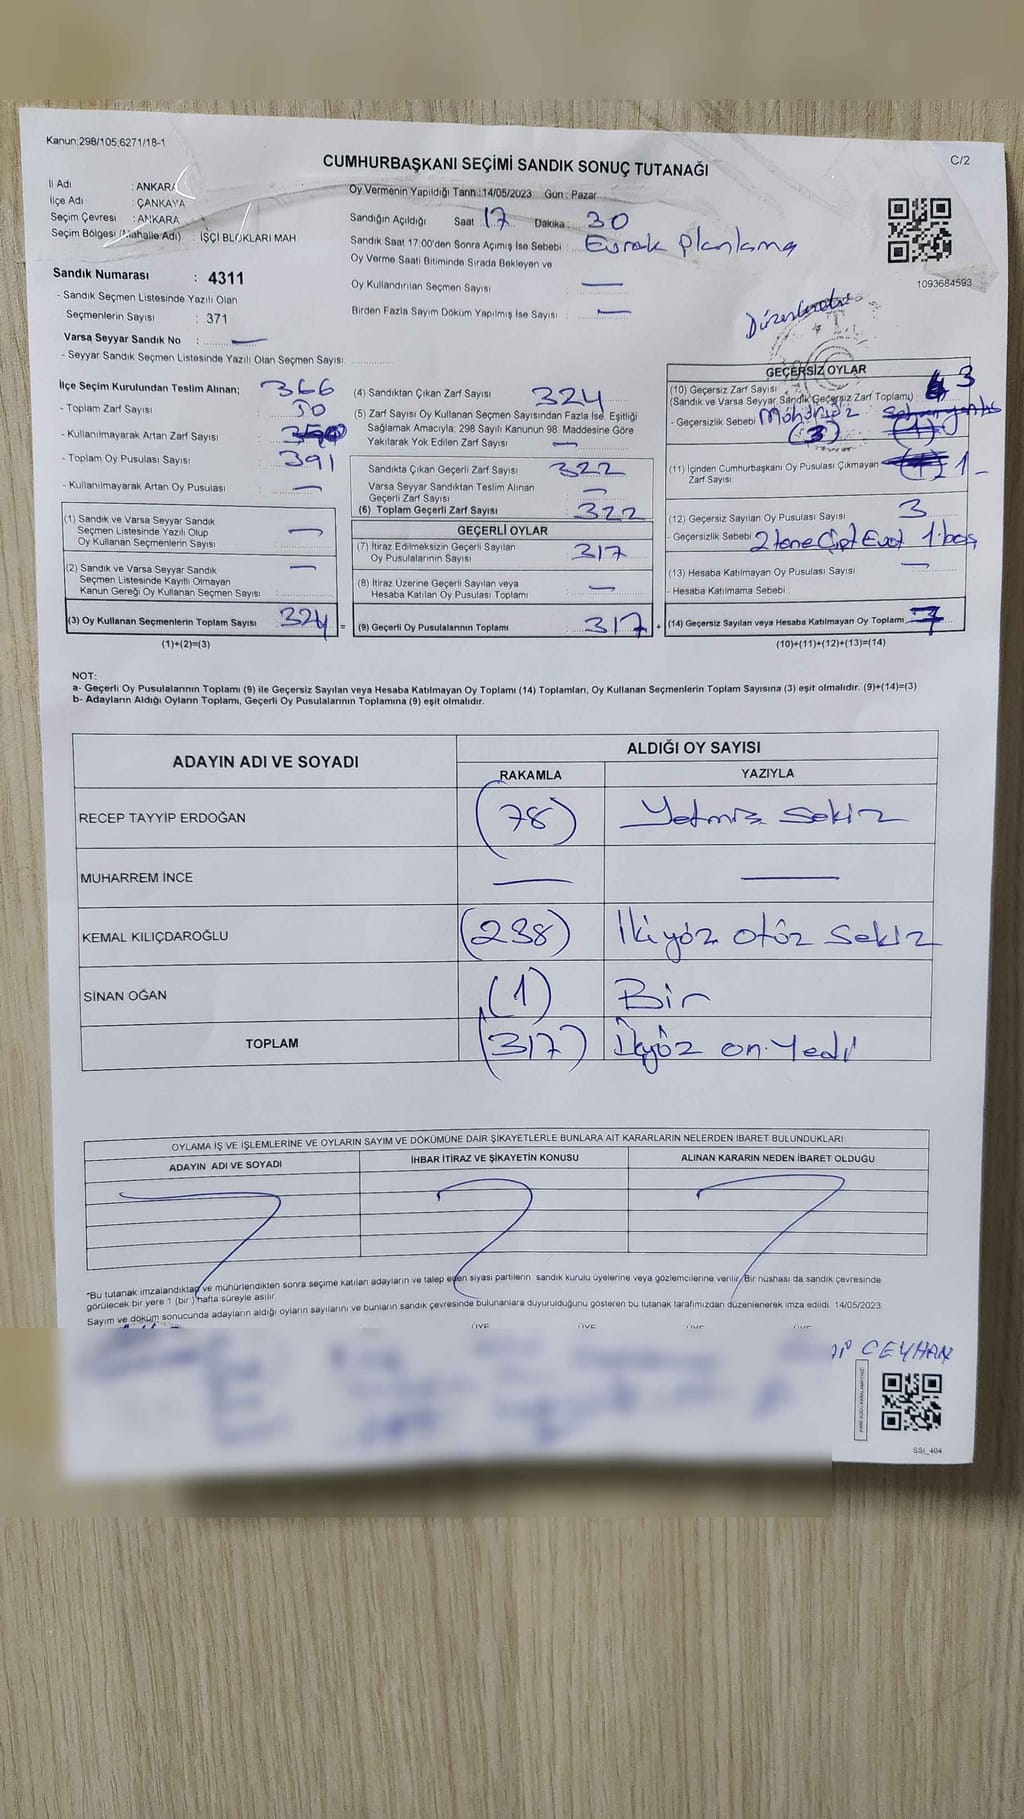 Kanun;298/105;6271/18-1
CUMHURBAŞKANI SEÇİMİ SANDIK SONUÇ TUTANAĞI
C/2
İl Adı : ANKARA
İlçe Adı : ÇANKAYA
Seçim Çevresi : ANKARA
Seçim Bölgesi (Mahalle Adı) : İŞÇİ BLOKLARI MAH
Oy Vermenin Yapıldığı Tarih : 14/05/2023 Gün : Pazar
Sandığın Açıldığı Saat 17 Dakika 30
Sandık Saat 17:00'den Sonra Açımış İse Sebebi : Evrak Planlama
Oy Verme Saati Bitiminde Sırada Bekleyen ve
Oy Kullandırılan Seçmen Sayısı : —
Birden Fazla Sayım Döküm Yapılmış İse Sayısı : —
1093684593
Sandık Numarası : 4311
- Sandık Seçmen Listesinde Yazılı Olan
Seçmenlerin Sayısı : 371
Varsa Seyyar Sandık No : —
- Seyyar Sandık Seçmen Listesinde Yazılı Olan Seçmen Sayısı:
İlçe Seçim Kurulundan Teslim Alınan; 366
- Toplam Zarf Sayısı : 50
- Kullanılmayarak Artan Zarf Sayısı :
- Toplam Oy Pusulası Sayısı : 391
- Kullanılmayarak Artan Oy Pusulası : —
(1) Sandık ve Varsa Seyyar Sandık
Seçmen Listesinde Yazılı Olup
Oy Kullanan Seçmenlerin Sayısı : —
(2) Sandık ve Varsa Seyyar Sandık
Seçmen Listesinde Kayıtlı Olmayan
Kanun Gereği Oy Kullanan Seçmen Sayısı : —
(3) Oy Kullanan Seçmenlerin Toplam Sayısı 324 =
(1)+(2)=(3)
(4) Sandıktan Çıkan Zarf Sayısı 324
(5) Zarf Sayısı Oy Kullanan Seçmen Sayısından Fazla İse, Eşitliği
Sağlamak Amacıyla; 298 Sayılı Kanunun 98. Maddesine Göre
Yakılarak Yok Edilen Zarf Sayısı : —
Sandıkta Çıkan Geçerli Zarf Sayısı 322
Varsa Seyyar Sandıktan Teslim Alınan
Geçerli Zarf Sayısı —
(6) Toplam Geçerli Zarf Sayısı 322
GEÇERLİ OYLAR
(7) İtiraz Edilmeksizin Geçerli Sayılan
Oy Pusulalarının Sayısı 317
(8) İtiraz Üzerine Geçerli Sayılan veya
Hesaba Katılan Oy Pusulası Toplamı —
(9) Geçerli Oy Pusulalarının Toplamı 317 +
GEÇERSİZ OYLAR
(10) Geçersiz Zarf Sayısı 3
(Sandık ve Varsa Seyyar Sandık Geçersiz Zarf Toplamı)
- Geçersizlik Sebebi : Mühürsüz
(3)
(11) İçinden Cumhurbaşkanı Oy Pusulası Çıkmayan 1 -
Zarf Sayısı
(12) Geçersiz Sayılan Oy Pusulası Sayısı 3
- Geçersizlik Sebebi : 2 tane Çift Evet 1. boş
(13) Hesaba Katılmayan Oy Pusulası Sayısı : —
- Hesaba Katılmama Sebebi :
(14) Geçersiz Sayılan veya Hesaba Katılmayan Oy Toplamı 7
(10)+(11)+(12)+(13)=(14)
NOT:
a- Geçerli Oy Pusulalarının Toplamı (9) ile Geçersiz Sayılan veya Hesaba Katılmayan Oy Toplamı (14) Toplamları, Oy Kullanan Seçmenlerin Toplam Sayısına (3) eşit olmalıdır. (9)+(14)=(3)
b- Adayların Aldığı Oyların Toplamı, Geçerli Oy Pusulalarının Toplamına (9) eşit olmalıdır.
ADAYIN ADI VE SOYADI
ALDIĞI OY SAYISI
RAKAMLA YAZIYLA
RECEP TAYYİP ERDOĞAN (78) Yetmiş sekiz
MUHARREM İNCE — —
KEMAL KILIÇDAROĞLU (238) İkiyüz otuz sekiz
SİNAN OĞAN (1) Bir
TOPLAM (317) Üçyüz on yedi
OYLAMA İŞ VE İŞLEMLERİNE VE OYLARIN SAYIM VE DÖKÜMÜNE DAİR ŞİKAYETLERLE BUNLARA AİT KARARLARIN NELERDEN İBARET BULUNDUKLARI
ADAYIN ADI VE SOYADI İHBAR İTİRAZ VE ŞİKAYETİN KONUSU ALINAN KARARIN NEDEN İBARET OLDUĞU
*Bu tutanak imzalandıktan ve mühürlendikten sonra seçime katılan adayların ve talep eden siyasi partilerin sandık kurulu üyelerine veya gözlemcilerine verilir. Bir nüshası da sandık çevresinde
görülecek bir yere 1 (bir) hafta süreyle asılır.
Sayım ve döküm sonucunda adayların aldığı oyların sayılarını ve bunların sandık çevresinde bulunanlara duyurulduğunu gösteren bu tutanak tarafımızdan düzenlenerek imza edildi. 14/05/2023
ÜYE ÜYE ÜYE ÜYE
CEYHAN
SSİ_404